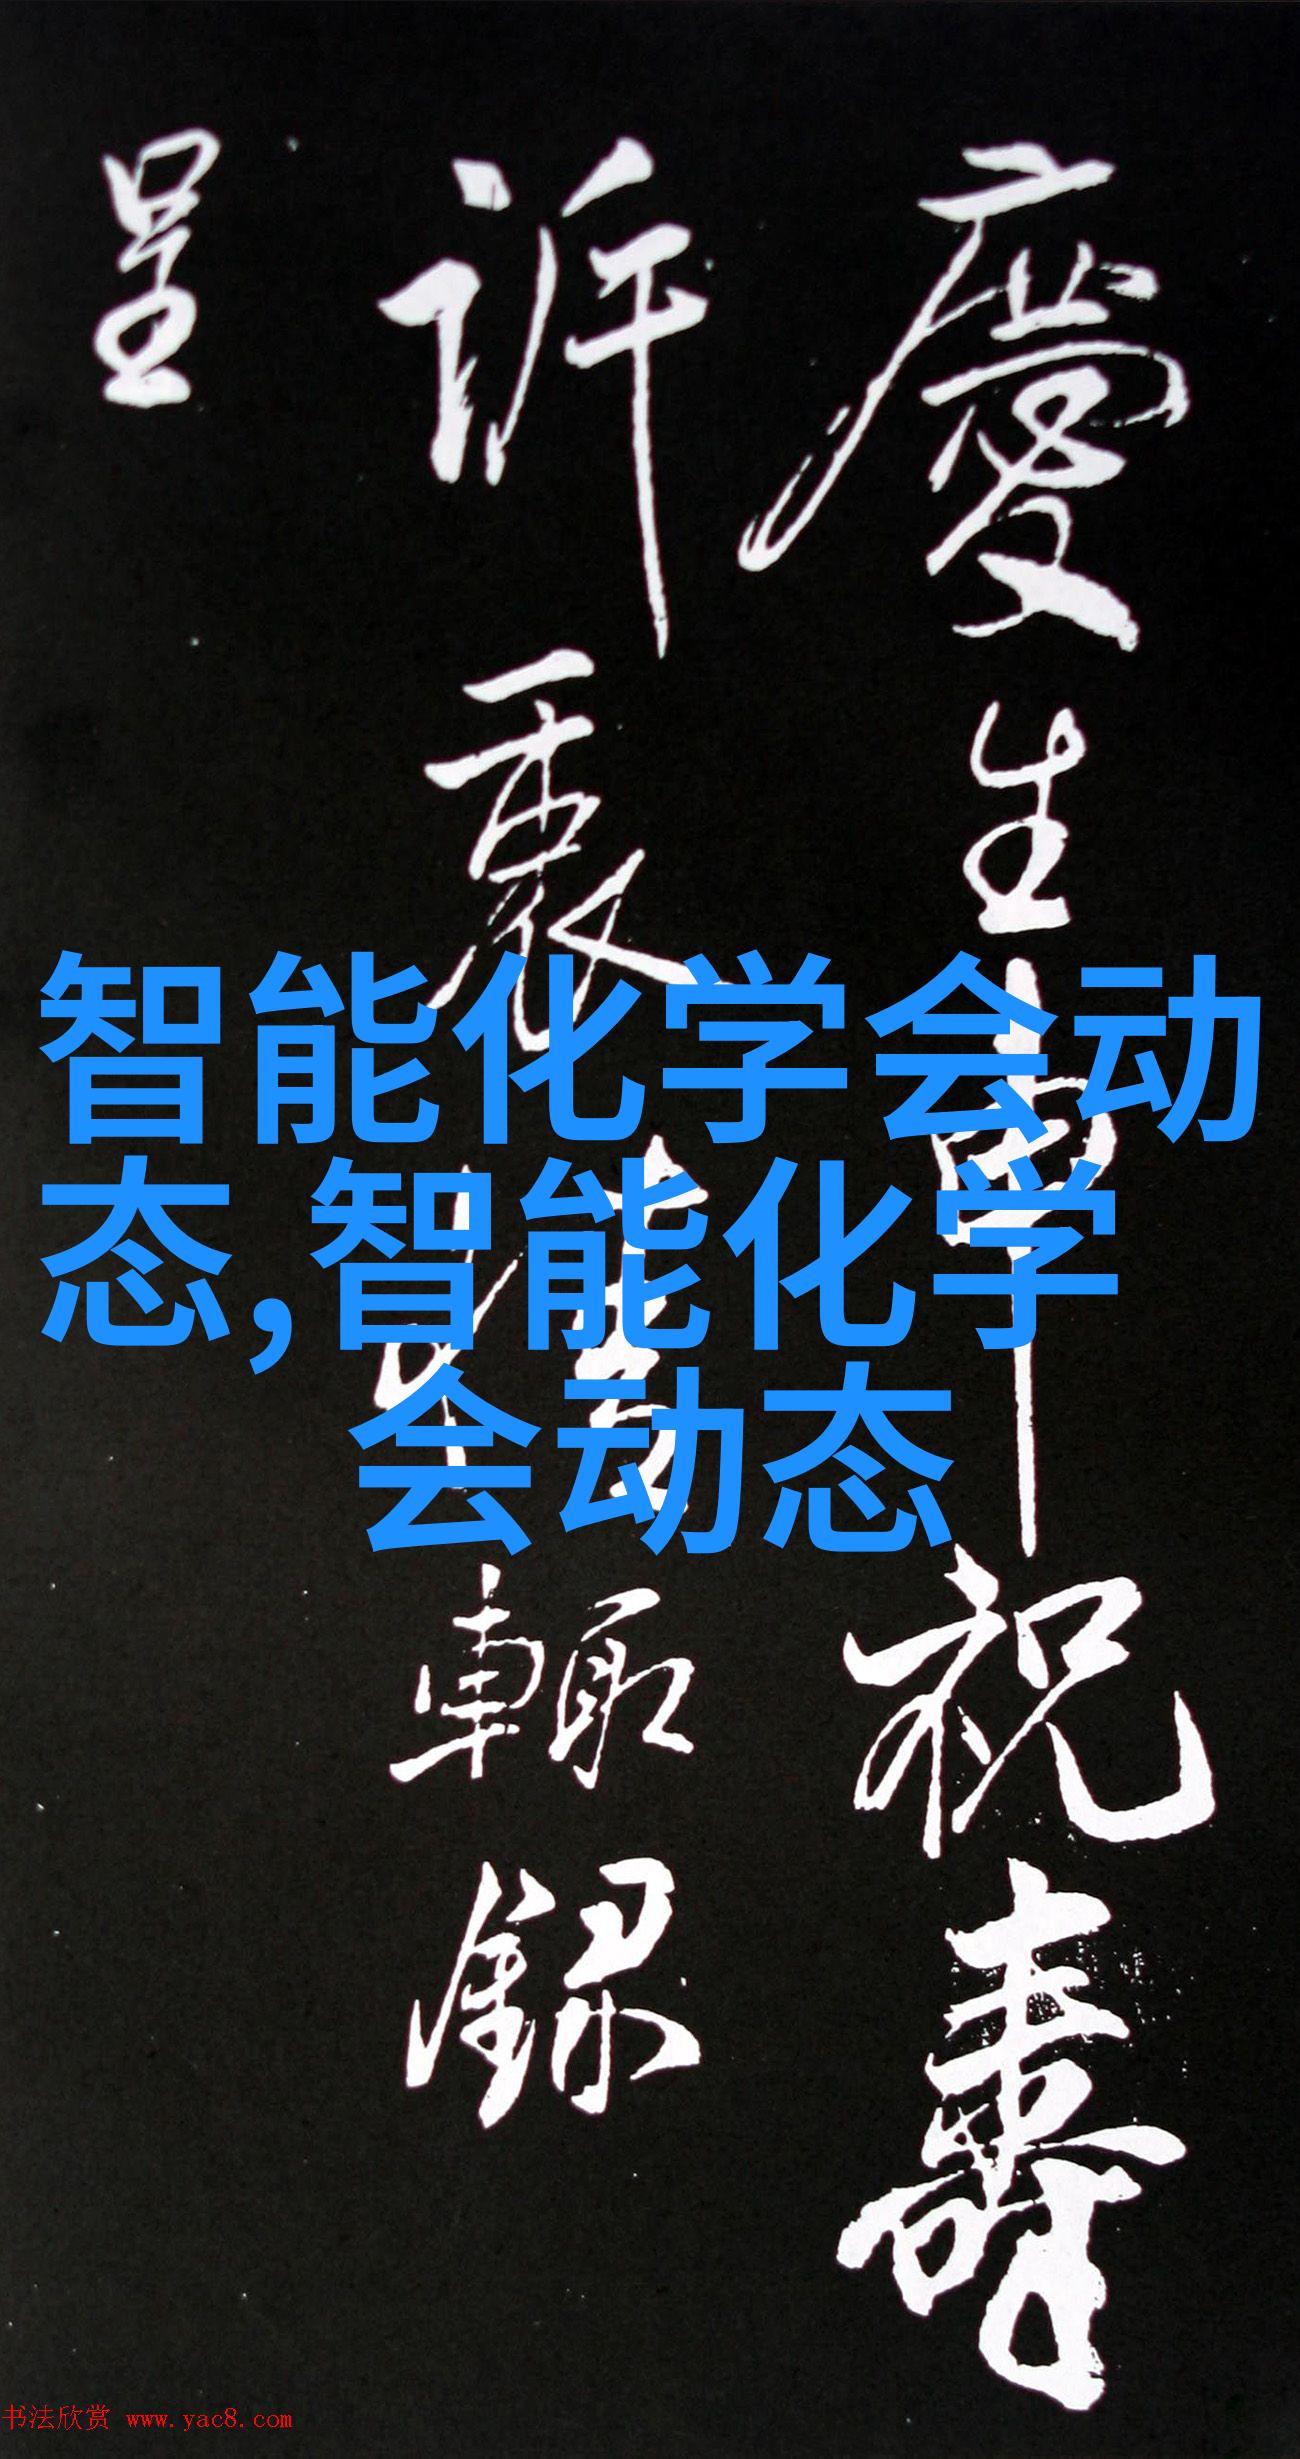 慶生申祝壽
訴衷情輒錄
呈
智能化学会动
态,智能化学
会动态
书法欣赏 www.yac8.com